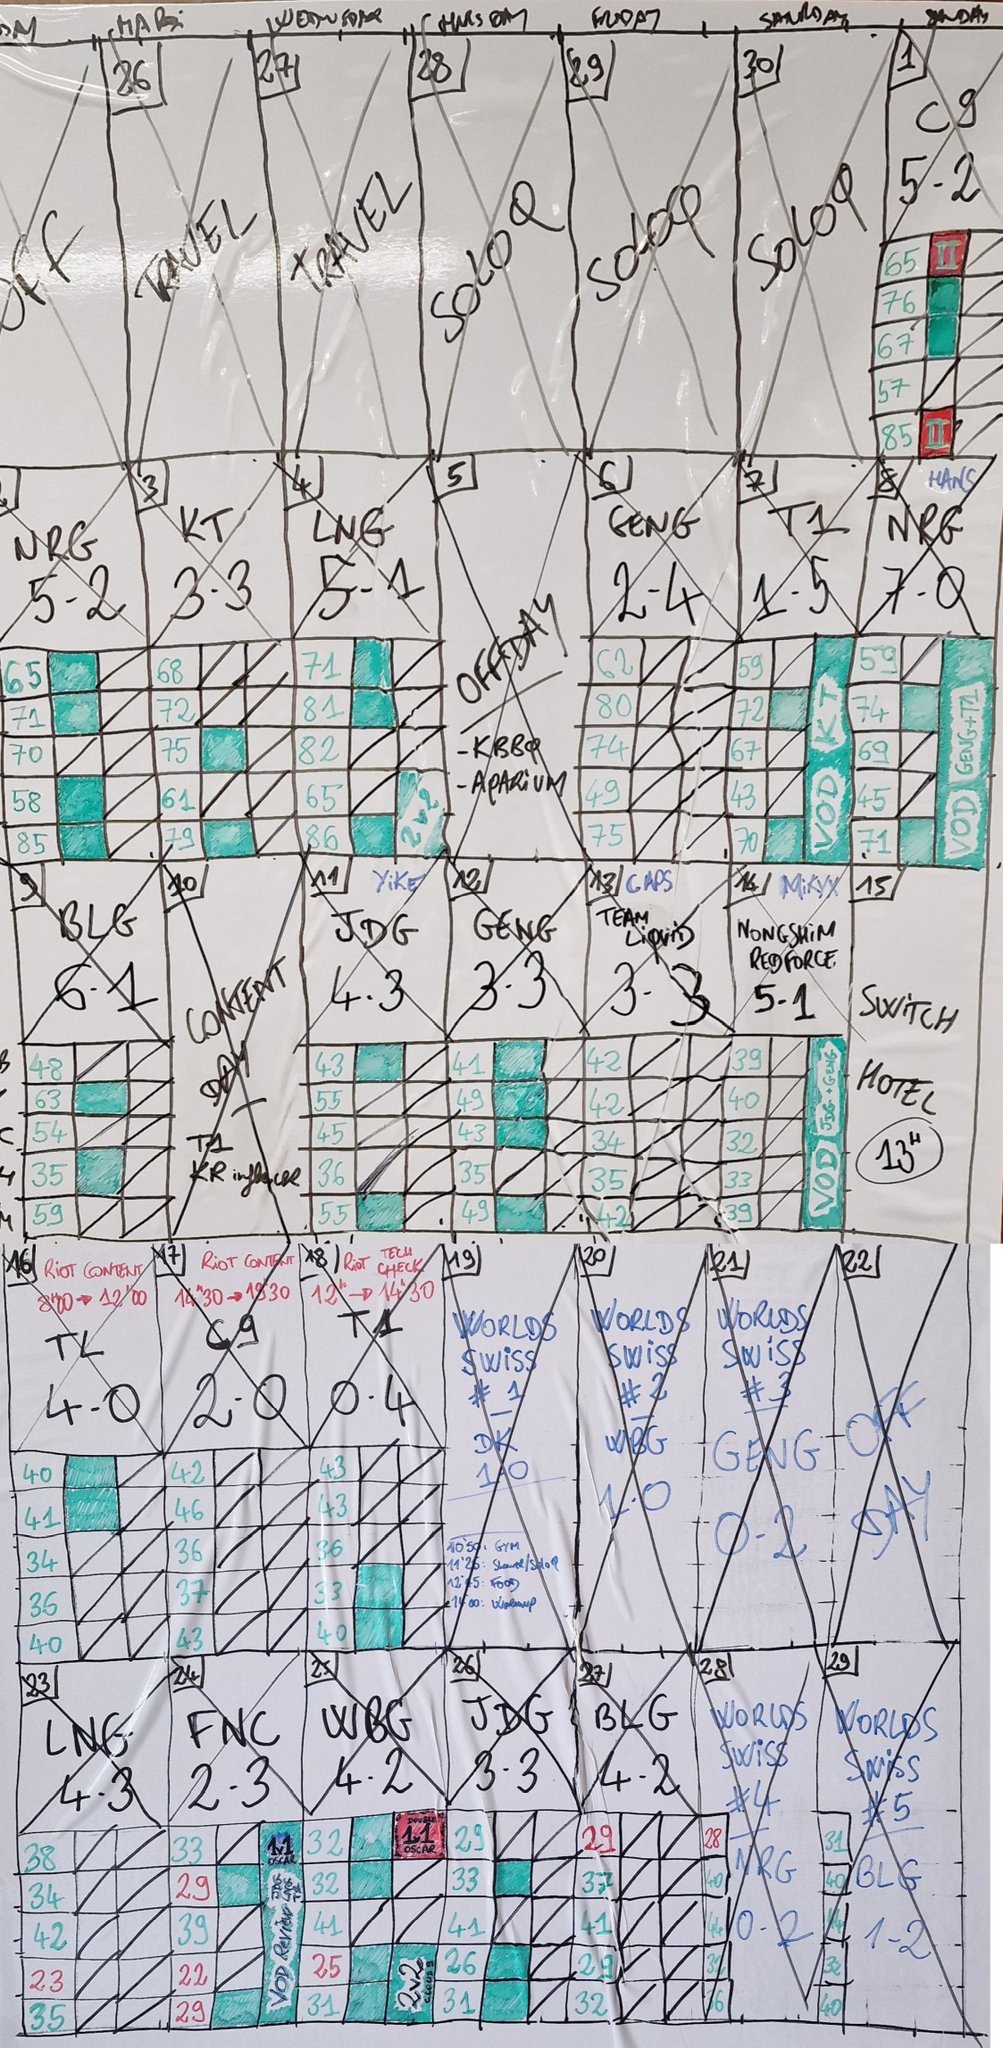 MARDi
WEDNESDAY
THURSDAY
FRIDAY
SATURDAY
SUNDAY
26
27
28
29
30
1
OFF
TRAVEL
TRAVEL
SOLOQ
SOLOQ
SOLOQ
C9
5-2
65 II
76
67
57
85 II
3
4
5
6
7
8 HANS
NRG
5-2
KT
3-3
LNG
5-1
OFFDAY
- KBBQ
- AQARIUM
GENG
2-4
T1
1-5
NRG
7-0
65
71
70
58
85
68
72
75
61
79
71
81
82
65
86
2v2
62
80
74
49
75
59
72
67
43
70
VOD KT
59
74
69
45
71
VOD GENG+T1
9
10
11 YiKE
12
13 CAPS
14 MiKYX
15
BLG
6-1
CONTENT
DAY
T1
JDG
4-3
GENG
3-3
TEAM
LiQUiD
3-3
NONGSHiM
REDFORCE
5-1
SWiTCH
HOTEL
13H
48
63
54
35
59
43
55
45
36
55
41
49
43
35
49
42
42
34
35
42
39
40
32
33
39
VOD JDG+GENG
16 RiOT CONTENT
8H00 → 12H00
17 RiOT CONTENT
14H30 → 18H30
18 RiOT TECH CHECK
12H → 14H30
19
20
21
22
TL
4-0
C9
2-0
T1
0-4
WORLDS
SWiSS
#1
DK
1-0
10H50: GYM
12H45: FOOD
14H00: Warmup
WORLDS
SWiSS
#2
WBG
1-0
WORLDS
SWiSS
#3
GENG
0-2
OFF
DAY
40
41
34
36
40
42
46
36
37
43
43
43
36
33
40
23
24
25
26
27
28
29
LNG
4-3
FNC
2-3
WBG
4-2
JDG
3-3
BLG
4-2
WORLDS
SWiSS
#4
NRG
0-2
WORLDS
SWiSS
#5
BLG
1-2
38
34
42
23
35
33
29
39
22
29
1v1
OSCAR
VOD Review
32
32
41
25
31
DOUBLE
1v1
OSCAR
2v2
29
33
41
26
31
29
37
41
29
32
28
40
31
40
40